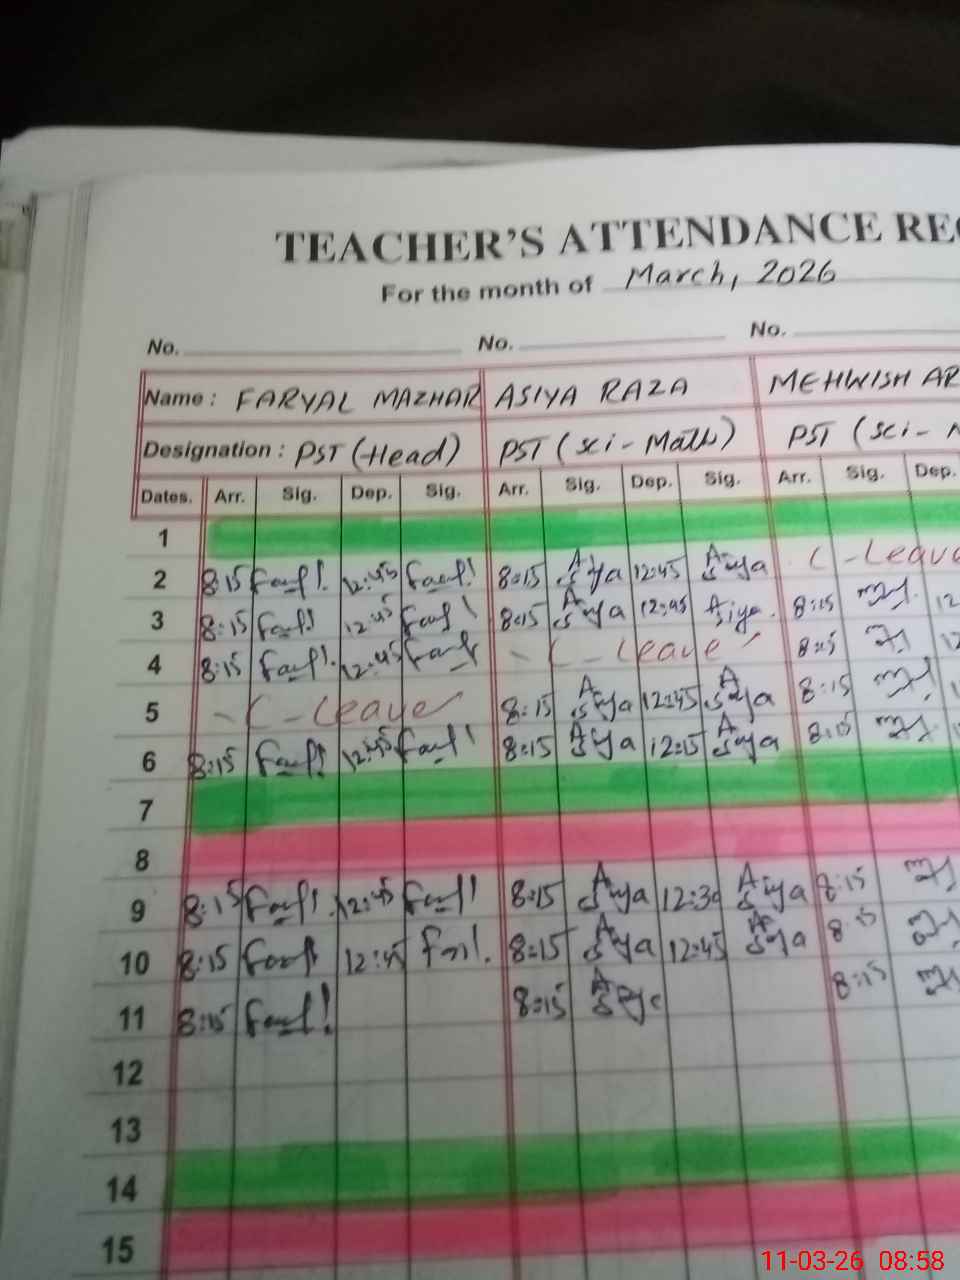 TEACHER'S ATTENDANCE REC
For the month of March, 2026
No. No. No.
Name: FARYAL MAZHAR ASIYA RAZA MEHWISH AR
Designation: PST (Head) PST (Sci-Math) PST (Sci-M
Dates. Arr. Sig. Dep. Sig. Arr. Sig. Dep. Sig. Arr. Sig. Dep.
1
2 8:15 12:45 8:15 Asiya 12:45 Asiya C-Leave
3 8:15 12:45 8:15 Asiya 12:45 Asiya 8:15 12
4 8:15 12:45 - C-Leave 8:15 12
5 - C-Leave 8:15 Asiya 12:45 Asiya 8:15
6 8:15 12:45 8:15 Asiya 12:15 Asiya 8:15
7
8
9 8:15 12:45 8:15 Asiya 12:30 Asiya 8:15
10 8:15 12:45 8:15 Asiya 12:45 Asiya 8:15
11 8:15 8:15 8:15
12
13
14
15
11-03-26 08:58